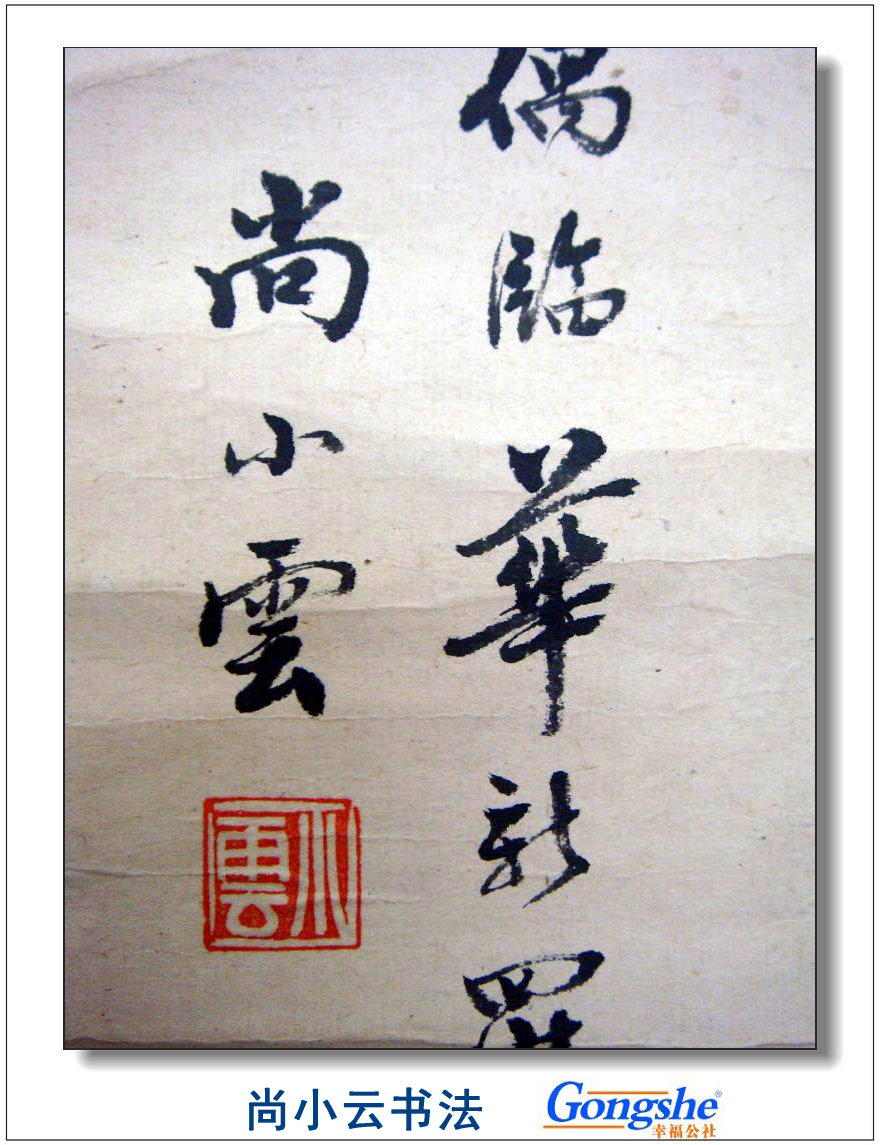 偶臨華新羅
尚小雲
小雲
尚小云书法
Gongshe®
幸福公社